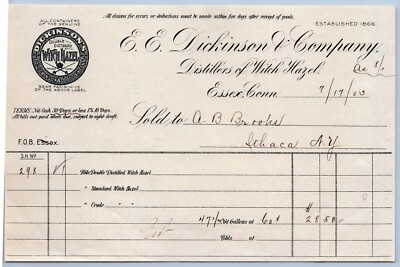 All claims for errors or deductions must be made within five days after receipt of goods.
ALL CONTAINERS
OF THE GENUINE
DICKINSON'S
DOUBLE DISTILLED
WITCH HAZEL
BEAR FACSIMILE
OF THE ABOVE LABEL
ESTABLISHED 1866
E. E. Dickinson & Company,
Distillers of Witch Hazel.
Essex, Conn. 7/17/03
TERMS: Net Cash 30 Days, or less 1% 10 Days.
All bills not paid when due, subject to sight draft.
Sold to A. B. Brooks
Ithaca N.Y
F.O.B. Essex.
S.H. No
298 √1 Bbls Double Distilled Witch Hazel
" Standard Witch Hazel
" Crude " "
47½ Wt Gallons at 60¢ $ 28.50
Bbls at